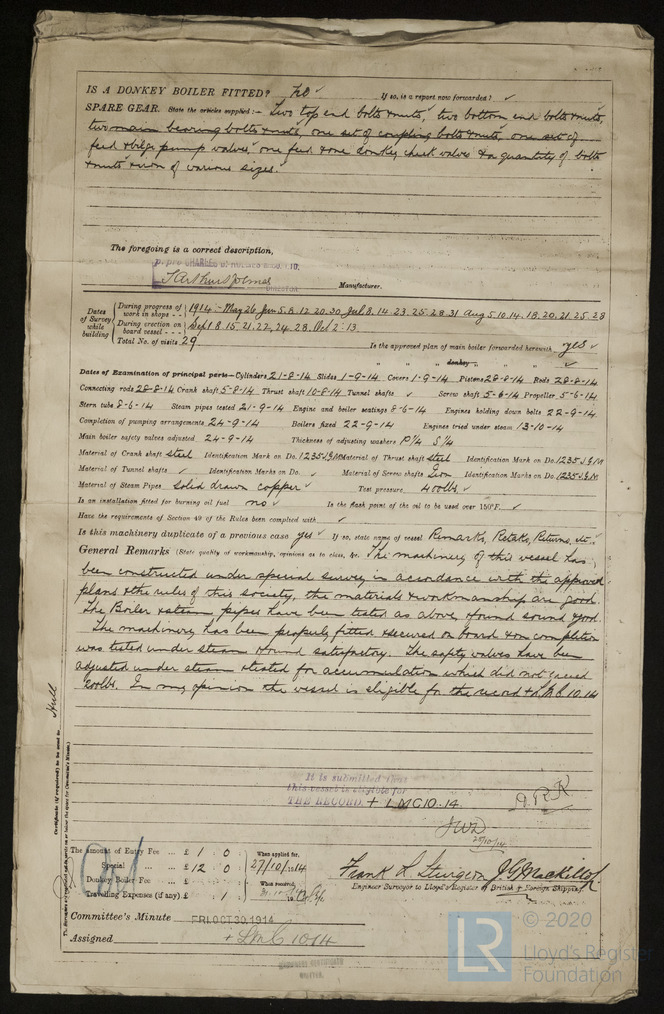 IS A DONKEY BOILER FITTED? No ✓ If so, is a report now forwarded? ✓
SPARE GEAR. State the articles supplied:— Two top end bolts & nuts, two bottom end bolts & nuts,
two main bearing bolts & nuts, one set of coupling bolts & nuts, one set of
feed & bilge pump valves, one feed & one donkey check valves & a quantity of bolts
& nuts & iron of various sizes.
The foregoing is a correct description,
Manufacturer.
Dates of Survey while building
During progress of work in shops - - 1914:- May 26 Jun 5. 8. 12. 20. 30. Jul 8. 14. 23. 25. 28. 31 Aug 5. 10. 14. 18. 20. 21. 25. 28
During erection on board vessel - - - Sept 1. 8. 15. 21. 22. 24. 28. Oct 2. 13.
Total No. of visits 29. Is the approved plan of main boiler forwarded herewith yes ✓
" " " donkey " " " ✓
Dates of Examination of principal parts—Cylinders 21-8-14 Slides 1-9-14 Covers 1-9-14 Pistons 28-8-14 Rods 28-8-14
Connecting rods 28-8-14 Crank shaft 5-8-14 Thrust shaft 10-8-14 Tunnel shafts ✓ Screw shaft 5-6-14 Propeller 5-6-14
Stern tube 8-6-14 Steam pipes tested 21-9-14 Engine and boiler seatings 8-6-14 Engines holding down bolts 22-9-14
Completion of pumping arrangements 24-9-14 Boilers fixed 22-9-14 Engines tried under steam 13-10-14
Main boiler safety valves adjusted 24-9-14 Thickness of adjusting washers P 1/4 S 1/4
Material of Crank shaft steel Identification Mark on Do. 1235 Material of Thrust shaft steel Identification Mark on Do. 1235
Material of Tunnel shafts ✓ Identification Marks on Do. ✓ Material of Screw shafts Iron Identification Marks on Do. 1235
Material of Steam Pipes solid drawn copper ✓ Test pressure 400 lbs. ✓
Is an installation fitted for burning oil fuel no ✓ Is the flash point of the oil to be used over 150°F. ✓
Have the requirements of Section 49 of the Rules been complied with ✓
Is this machinery duplicate of a previous case yes ✓ If so, state name of vessel Remarko, Retako, Returno, etc.
General Remarks (State quality of workmanship, opinions as to class, &c. The machinery of this vessel has
been constructed under special survey in accordance with the approved
plans & the rules of this society, the materials & workmanship are good.
The Boiler & steam pipes have been tested as above, found sound & good.
The machinery has been properly fitted & secured on board & on completion
was tested under steam & found satisfactory. The safety valves have been
adjusted under steam & tested for accumulation which did not exceed
200 lbs. In my opinion the vessel is eligible for the record + LMC 10.14
Hull
It is submitted that
this vessel is eligible for
THE RECORD. + LMC 10.14.
JWD
The amount of Entry Fee ... £ 1 : 0 When applied for,
Special ... £ 12 : 0 27/10/1914
Donkey Boiler Fee ... £ When received,
Travelling Expenses (if any) £ : 1
Frank L Sturgeon J. G. Mackillop
Engineer Surveyor to Lloyd's Register of British & Foreign Shipping.
Committee's Minute FRI. OCT 30. 1914
Assigned + LMC 10.14
LR
© 2020
Lloyd's Register
Foundation